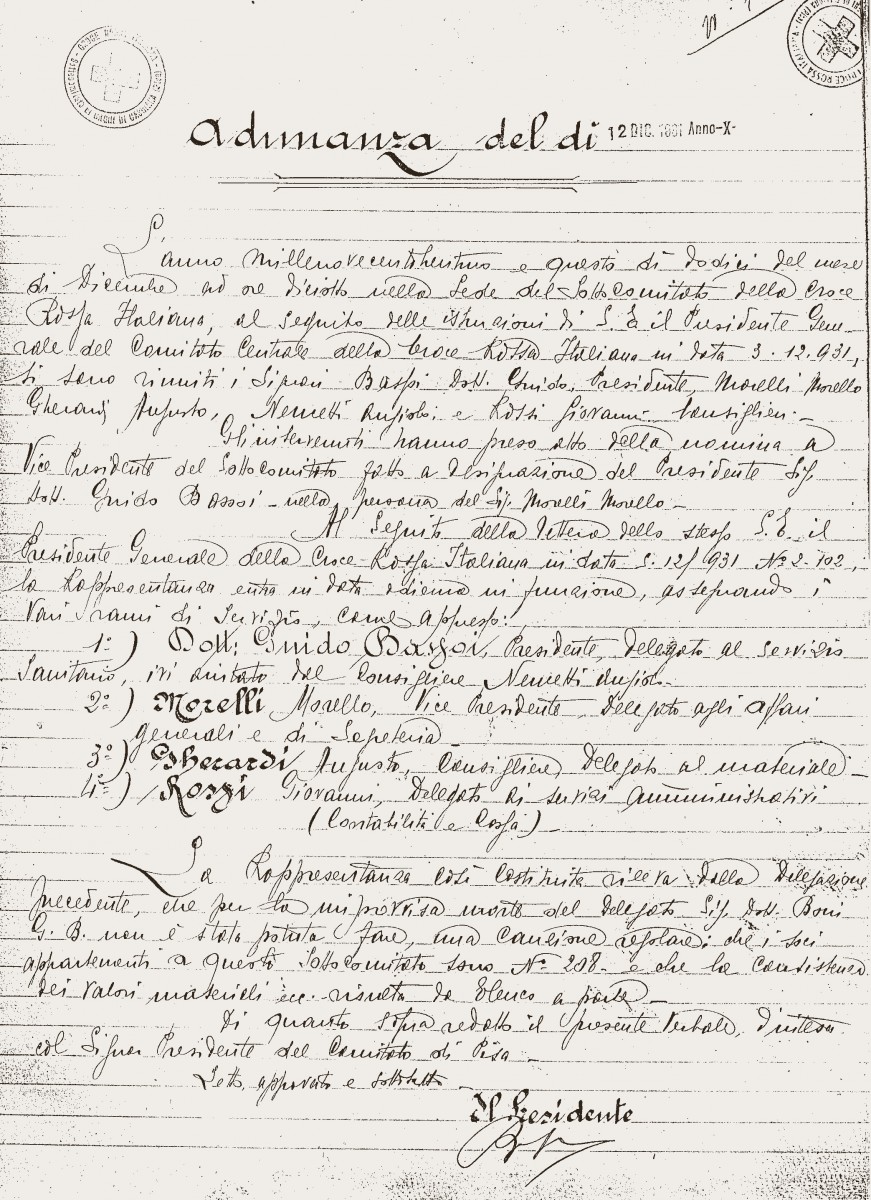 Adunanza del dì 12 DIC. 1931 Anno-X-
L'anno millenovecentotrentuno e questo dì dodici del mese
di Dicembre ad ore diciotto nella Sede del Sottocomitato della Croce
Rossa Italiana, al seguito delle istruzioni di S. E. il Presidente Gene-
rale del Comitato Centrale della Croce Rossa Italiana in data 3.12.931,
si sono riuniti i Signori Bassi Dott. Guido, Presidente, Morelli Morello
Gherardi Augusto, Nemetti e Rossi Giovanni Consiglieri.-
Gli intervenuti hanno preso atto della nomina a
Vice Presidente del Sottocomitato fatta a designazione del Presidente Sig.
Dott. Guido Bassi - nella persona del Sig. Morelli Morello -
Al Seguito della lettera dello stesso S. E. il
Presidente Generale della Croce Rossa Italiana in data 5.12/931 No 2-102,
la Rappresentanza entra in data odierna in funzione, assegnando i
vari rami di servizio, come appresso:
1o) Dott. Guido Bassi, Presidente, Delegato al servizio
Sanitario, ivi aiutato dal Consigliere Nemetti
2o) Morelli Morello, Vice Presidente, Delegato agli affari
generali e di Segreteria
3o) Gherardi Augusto, Consigliere, Delegato al materiale -
4o) Rossi Giovanni, Delegato ai servizi amministrativi
(Contabilità e Cassa) -
La Rappresentanza così costituita rileva dalla Delegazione
precedente, che per la improvvisa morte del Delegato Sig. Dott. Boni
G. B. non è stata potuta fare, una cauzione regolare; che i soci
appartenenti a questo Sottocomitato sono No 208 - e che la consistenza
dei valori materiali ecc. risulta da Elenco a parte -
Di quanto sopra redatto il presente Verbale, d'intesa
col Signor Presidente del Comitato di Pisa -
Letto, approvato e sottoscritto -
Il Presidente